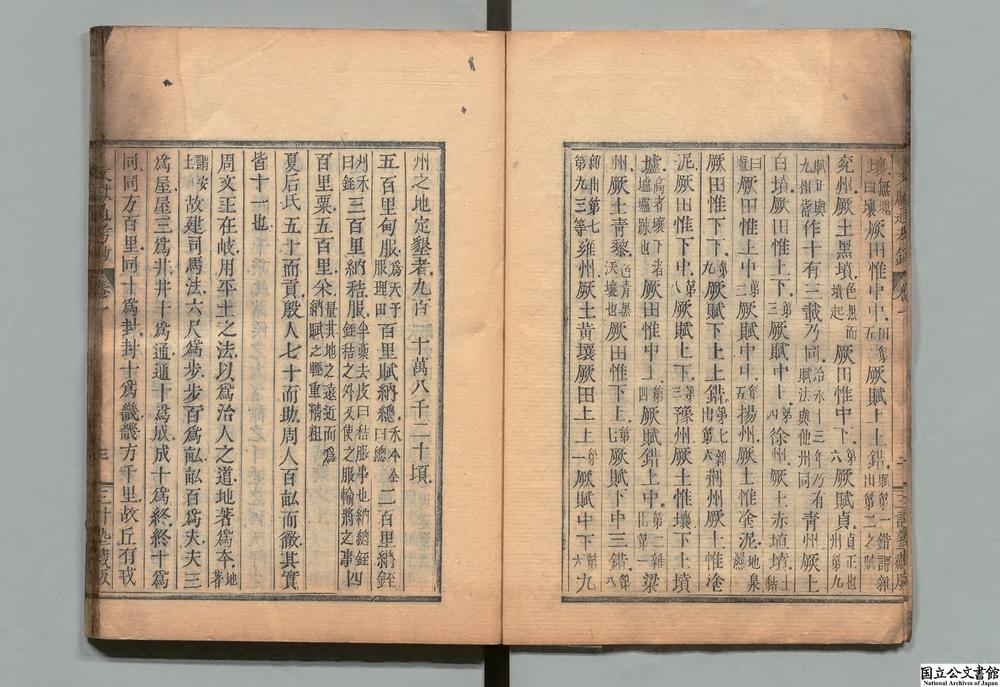 壤無塊曰壤厥田惟中中田第五厥賦上上錯賦第一錯謂雜出第二之賦
兗州厥土黑墳色黑而墳起厥田惟中下第六厥賦貞貞正也州第九
賦正與九州皆作十有三載乃同治水十三年乃有賦法與他州同青州厥土
白墳厥田惟上下第三厥賦中上第四徐州厥土赤埴墳土黏
曰埴厥田惟上中第二厥賦中中第五揚州厥土惟塗泥地泉濕
厥田惟下下第九厥賦下上上錯第七雜出第六荊州厥土惟塗
泥厥田惟下中第八厥賦上下第三豫州厥土惟壤下土墳
壚高者壤下者壚壚疏也厥田惟中上第四厥賦錯上中第二雜出第一梁
州厥土青黎色青黑沃壤也厥田惟下上第七厥賦下中三錯第八
雜出第七第九三等雍州厥土黃壤厥田上上第一厥賦中下第六九
州之地定墾者九百一十萬八千二十頃
五百里甸服為天子服理田百里賦納總禾本全曰總二百里納銍
刈禾曰銍三百里納秸服半藁去皮曰秸服事也納總銍秸之外又使之服輸將之事四
百里粟五百里米量其地之遠近而為納賦之輕重精粗
夏后氏五十而貢殷人七十而助周人百畝而徹其實
皆十一也
周文王在岐用平土之法以為治人之道地著為本地著
謂安土故建司馬法六尺為步步百為畝畝百為夫夫三
為屋屋三為井井十為通通十為成成十為終終十為
同同方百里同十為封封十為畿畿方千里故丘有戎
文獻通考
卷一
三
國立公文書館
National Archives of Japan